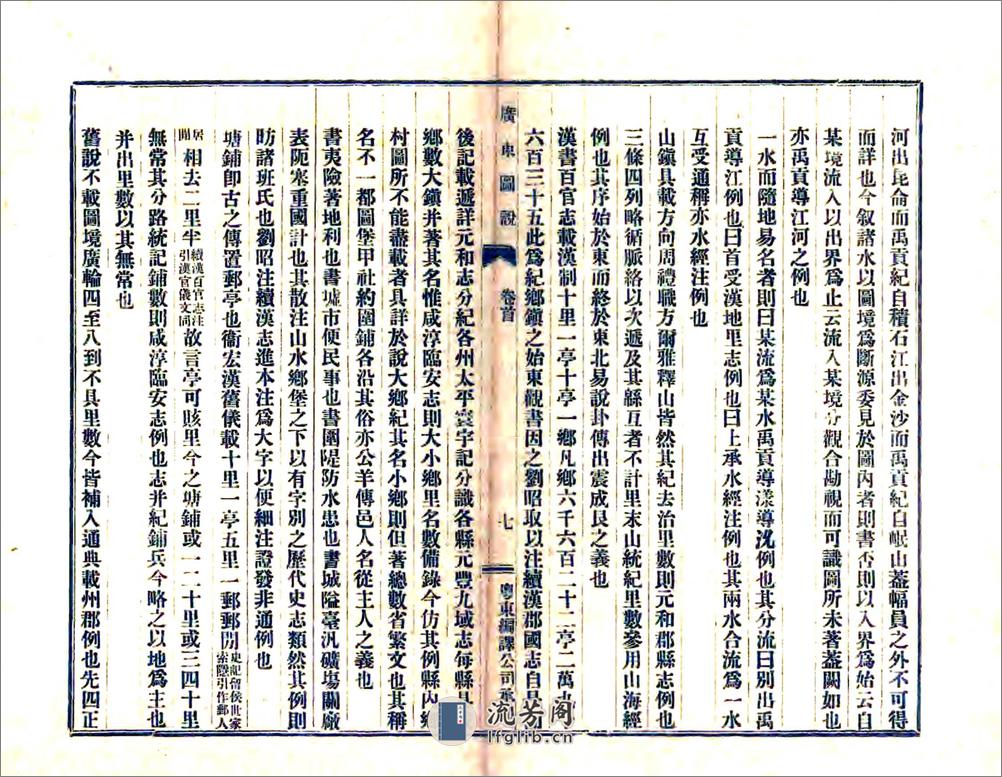 河出昆侖而禹貢紀自積石江出金沙而禹貢紀自岷山蓋幅員之外不可得
而詳也今叙諸水以圖境爲斷源委見於圖內者則書否則以入界爲始云自
某境流入以出界爲止云流入某境分觀合勘視而可識圖所未著蓋闕如也
亦禹貢導江河之例也
一水而隨地易名者則曰某流爲某水禹貢導漾導沇例也其分流曰別出禹
貢導江例也曰首受漢地里志例也曰上承水經注例也其兩水合流爲一水
互受通稱亦水經注例也
山鎮具載方向周禮職方爾雅釋山皆然其紀去治里數則元和郡縣志例也
三條四列略循脈絡以次遞及其緜亙者不計里末山統紀里數參用山海經
例也其序始於東而終於東北易說卦傳出震成艮之義也
漢書百官志載漢制十里一亭十亭一鄉凡鄉六千六百二十二亭二萬九
六百三十五此爲紀鄉鎮之始東觀書因之劉昭取以注續漢郡國志自是
廣東圖說
卷首
七
粵東編譯公司承
後記載遞詳元和志分紀各州太平寰宇記分識各縣元豐九域志每縣具
鄉數大鎮幷著其名惟咸淳臨安志則大小鄉里名數備錄今仿其例縣內鄉
村圖所不能盡載者具詳於說大鄉紀其名小鄉則但著總數省繁文也其稱
名不一都圖堡甲社約圍鋪各沿其俗亦公羊傳邑人名從主人之義也
書夷險著地利也書墟市便民事也書圍隄防水患也書城隘臺汛礦塲關廠
表阨塞重國計也其散注山水鄉堡之下以有字別之歷代史志類然其例則
昉諸班氏也劉昭注續漢志進本注爲大字以便細注證發非通例也
塘鋪卽古之傳置郵亭也衞宏漢舊儀載十里一亭五里一郵郵閒史記留侯世家索隱引作郵人
居閒相去二里半續漢百官志注引漢官儀文同故言亭可賅里今之塘鋪或一二十里或三四十里
無常其分路統記鋪數則咸淳臨安志例也志幷紀鋪兵今略之以地爲主也
幷出里數以其無常也
舊說不載圖境廣輪四至八到不具里數今皆補入通典載州郡例也先四正
流芳阁
lfglib.cn